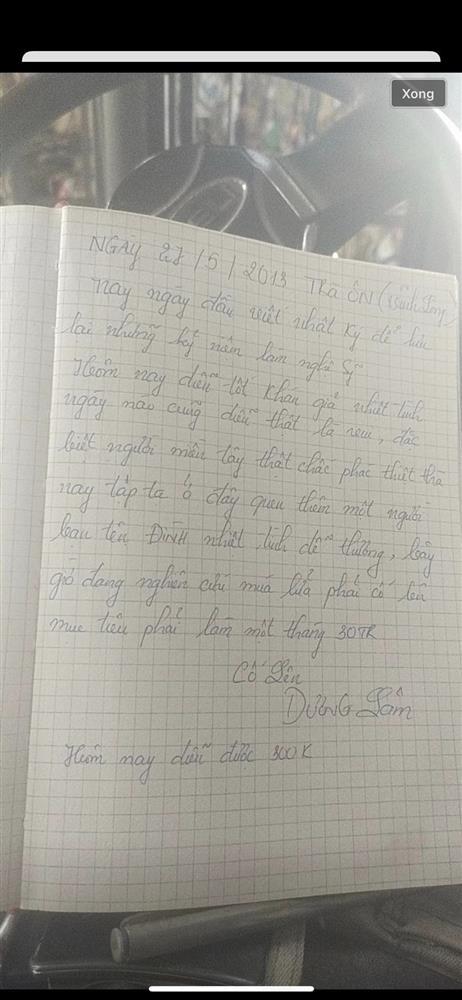 Xong
NGÀY 27/5/2013 TRÀ ÔN (Vĩnh Long)
Nay ngày đầu viết nhật ký để lưu
lại những kỷ niệm làm nghệ sỹ
Hôm nay diễn tốt khán giả nhiệt tình
ngày nào cũng diễn thật là vui, đặc
biệt người miền tây thật chấc phác thiệt thà
nay tấp ta ở đây quen thêm một người
bạn tên ĐÌNH nhiệt tình dễ thương, bây
giờ đang nghiên cứu múa lửa phải cố lên
mục tiêu phải làm một tháng 30TR
Cố Lên
DƯƠNG Lâm
Hôm nay diễn được 300K